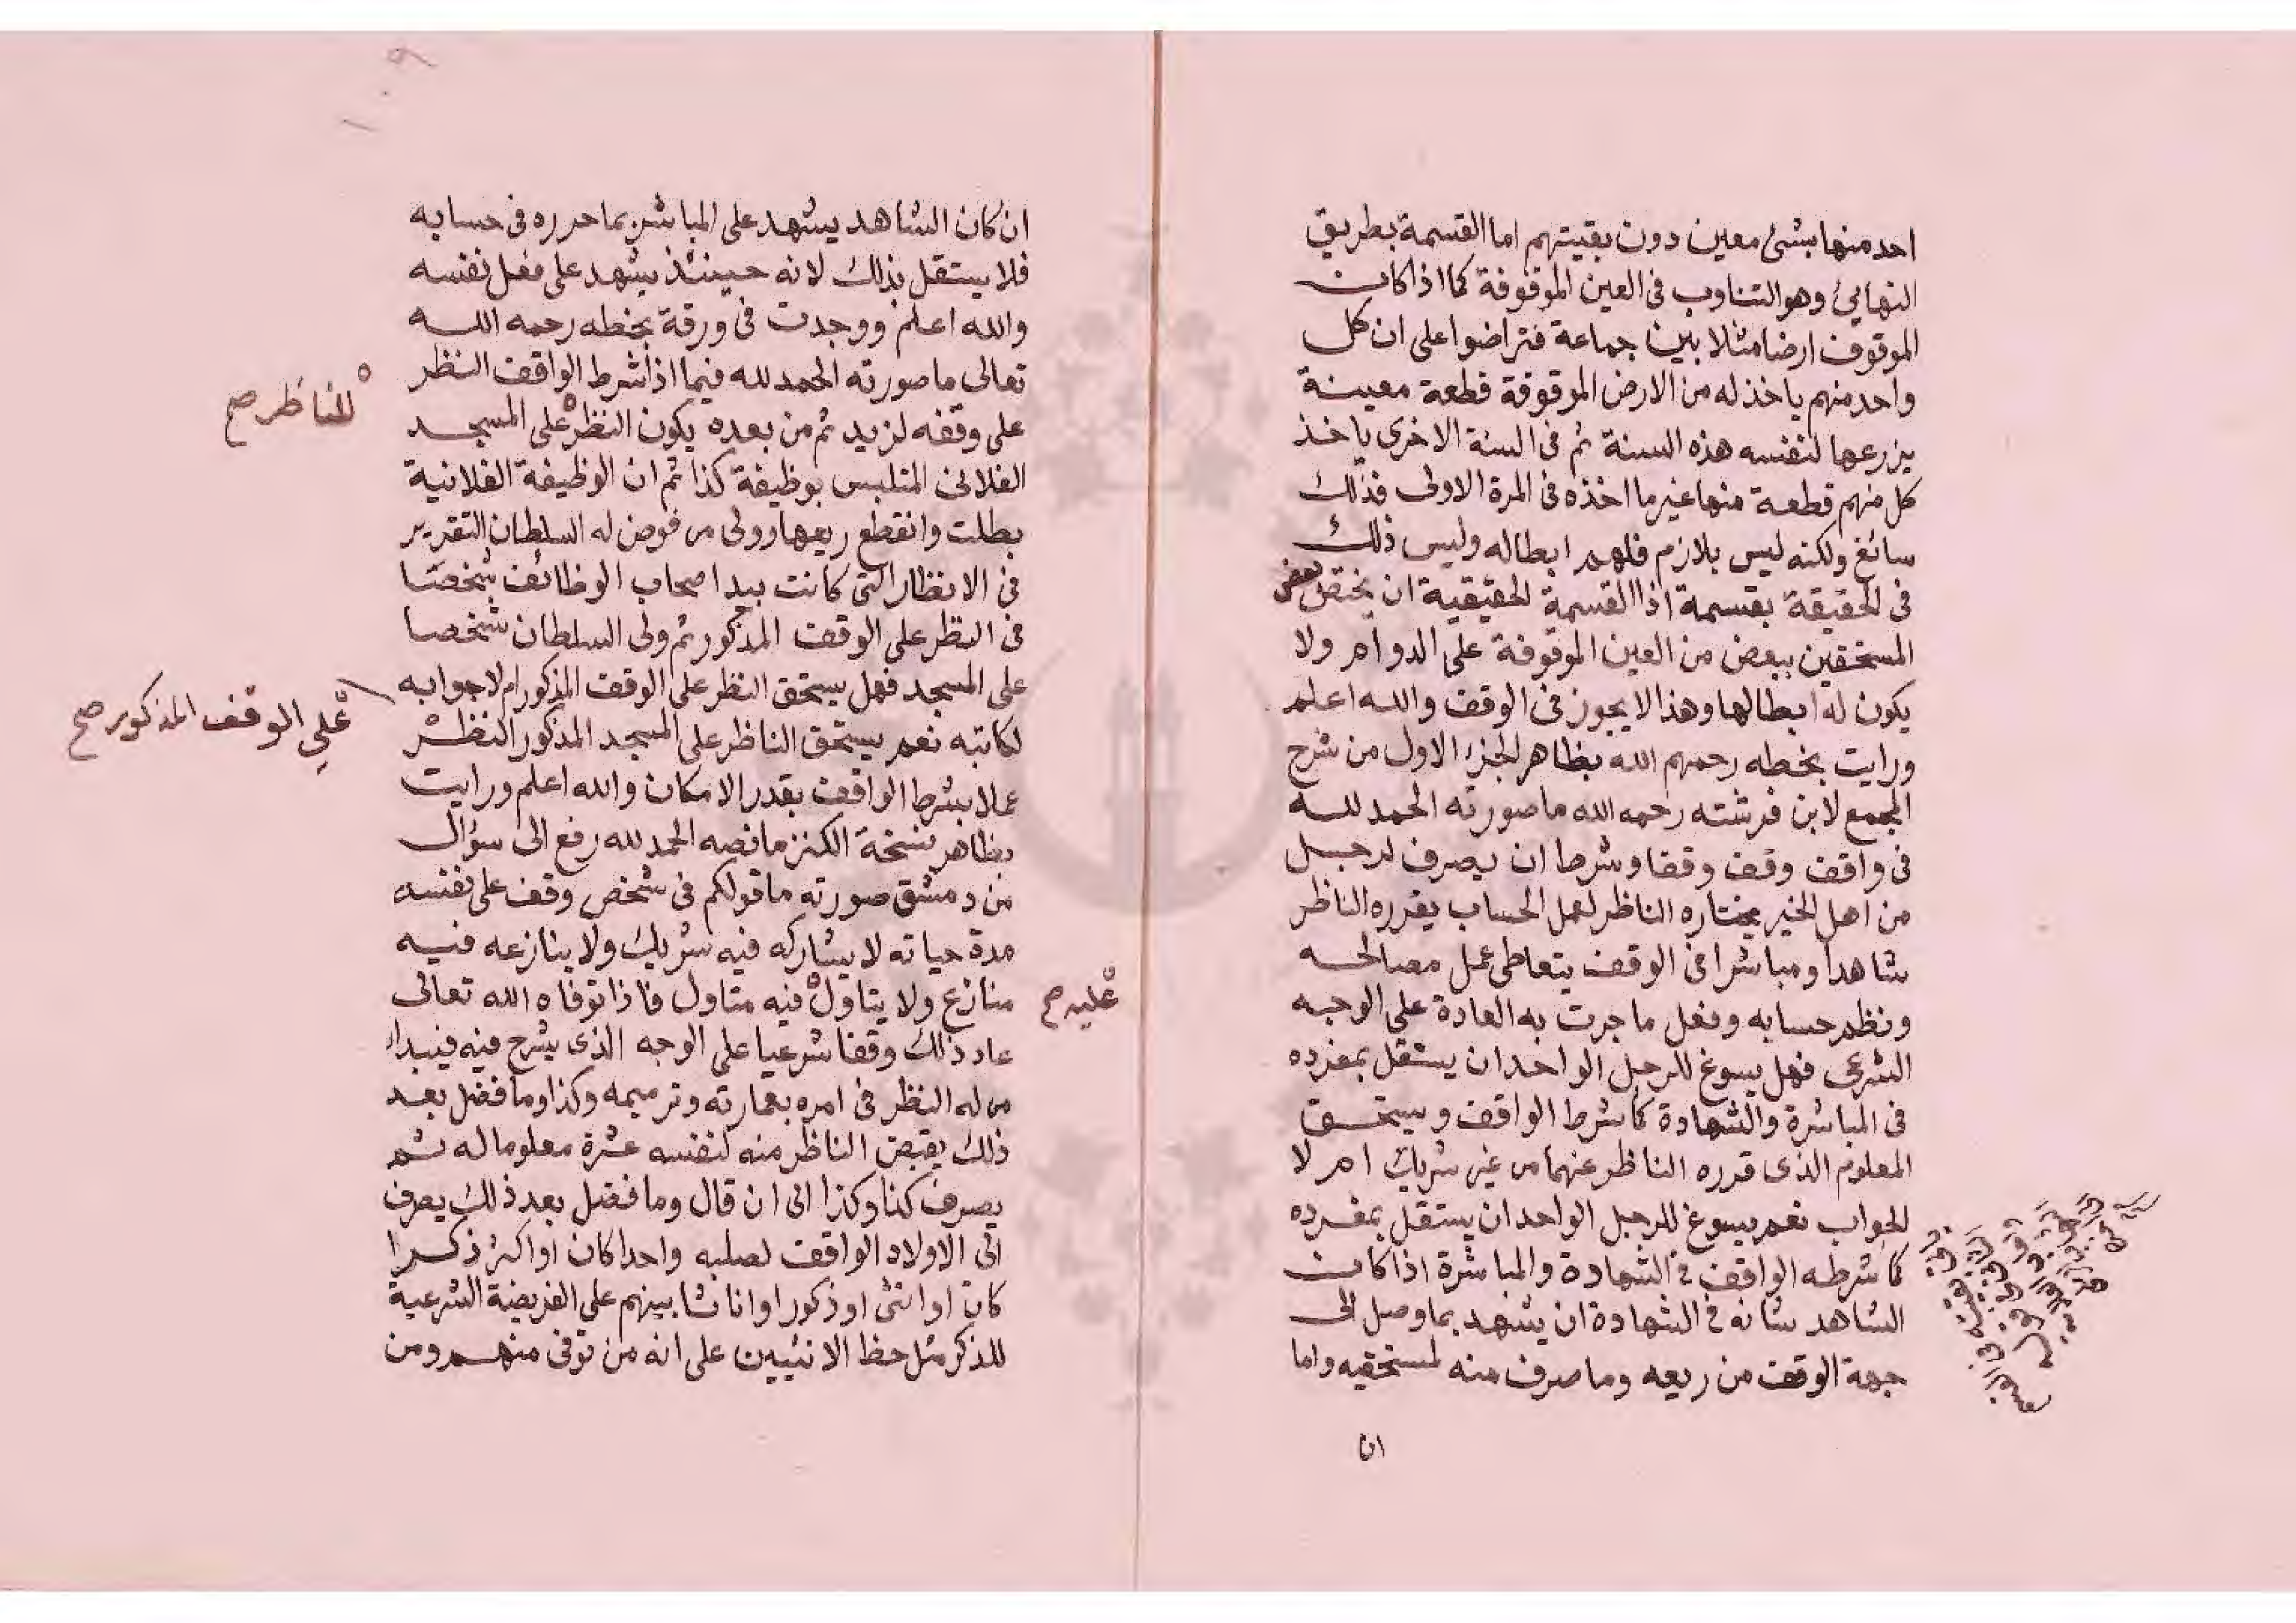 احد منها بشئ معين دون بقيتهم اما القسمة بطريق
التهايئ وهو التناوب فى العين الموقوفة كما اذا كانت
الموقوف ارضا مثلا بين جماعة فتراضوا على ان كل
واحد منهم ياخذ له من الارض الموقوفة قطعة معينة
يزرعها لنفسه هذه السنة ثم فى السنة الاخرى ياخذ
كل منهم قطعة منها غير ما اخذه فى المرة الاولى فذلك
سائغ ولكنه ليس بلازم فلهم ابطاله وليس ذلك
فى الحقيقة بقسمة اذ القسمة الحقيقية ان يختص بعض
المستحقين ببعض من العين الموقوفة على الدوام ولا
يكون له ابطالها وهذا لا يجوز فى الوقف والله اعلم
ورايت بخطه رحمهم الله بظاهر الجزء الاول من شرح
المجمع لابن فرشته رحمه الله ما صورته الحمد لله
فى واقف وقف وقفا وشرط ان يصرف لرجل
من اهل الخير يختاره الناظر لعمل الحساب يقرره الناظر
شاهدا ومباشرا فى الوقف يتعاطى عمل مصالحه
ونظم حسابه وفعل ما جرت به العادة على الوجه
الشرعى فهل يسوغ للرجل الواحد ان يستقل بمفرده
فى المباشرة والشهادة كما شرط الواقف ويستحق
المعلوم الذى قرره الناظر عنهما من غير شريك ام لا
الجواب نعم يسوغ للرجل الواحد ان يستقل بمفرده
كما شرطه الواقف فى الشهادة والمباشرة اذا كانت
الشاهد شانه فى الشهادة ان يشهد بما وصل الى
جهة الوقف من ريعه وما صرف منه لمستحقيه واما
ان
ان كان الشاهد يشهد على المباشر بما حرره فى حسابه
فلا يستقل بذلك لانه حينئذ يشهد على فعل نفسه
والله اعلم ووجدت فى ورقة بخطه رحمه الله
تعالى ما صورته الحمد لله فيما اذا شرط الواقف النظر
على وقفه لزيد ثم من بعده يكون النظر على المسجد
للناظر صح
الفلانى المتلبس بوظيفة كذا ثم ان الوظيفة الفلانية
بطلت وانقطع ريعها وولى من فوض له السلطان التقرير
فى الانظار التى كانت بيد اصحاب الوظائف شخصا
فى النظر على الوقف المذكور ثم ولى السلطان شخصا
على المسجد فهل يستحق النظر على الوقف المذكور ام لا جوابه
لكاتبه نعم يستحق الناظر على المسجد المذكور النظر
على الوقف المذكور صح
عملا بشرط الواقف بقدر الامكان والله اعلم ورايت
بظاهر نسخة الكنز ما نصه الحمد لله رفع الى سؤال
من دمشق صورته ما قولكم فى شخص وقف على نفسه
مدة حياته لا يشاركه فيه شريك ولا ينازعه فيه
منازع ولا يتاول فيه متاول فاذا توفاه الله تعالى
عليه صح
عاد ذلك وقفا شرعيا على الوجه الذى يشرح فيه فيبدا
من له النظر فى امره بعمارته وترميمه وكذا وما فضل بعد
ذلك يقبض الناظر منه لنفسه عشرة معلوما له ثم
يصرف كذا وكذا الى ان قال وما فضل بعد ذلك يصرف
الى الاولاد الواقف لصلبه واحدا كان او اكثر ذكرا
كان او انثى او ذكورا او اناثا بينهم على الفريضة الشرعية
للذكر مثل حظ الانثيين على انه من توفى منهم ومن
١٠٩